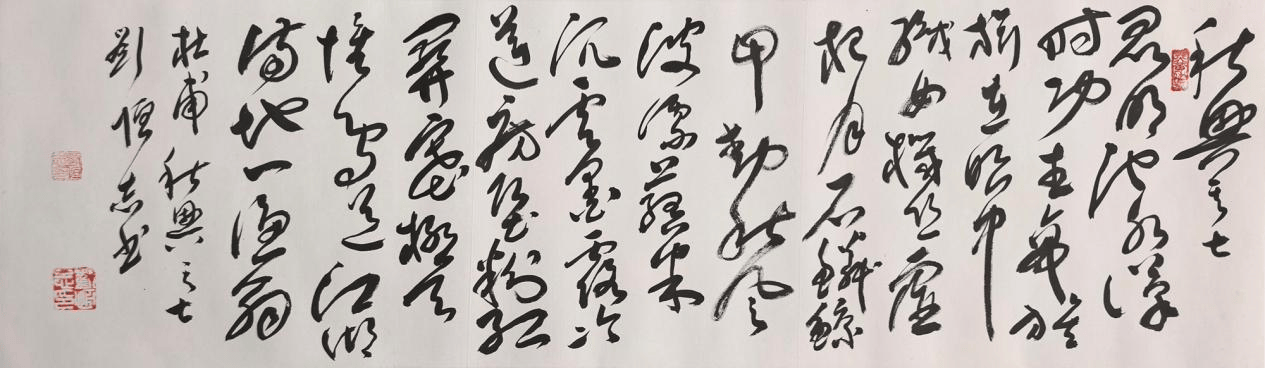 秋興之七
昆明池水漢
時功武帝旌
旗在眼中
織女機絲虛
夜月石鱗鯨
甲動秋風
波漂菰米
沉雲黑露冷
蓮房墜粉紅
關塞極天
惟鳥道江湖
滿地一漁翁
杜甫秋興之七
劉恒志书